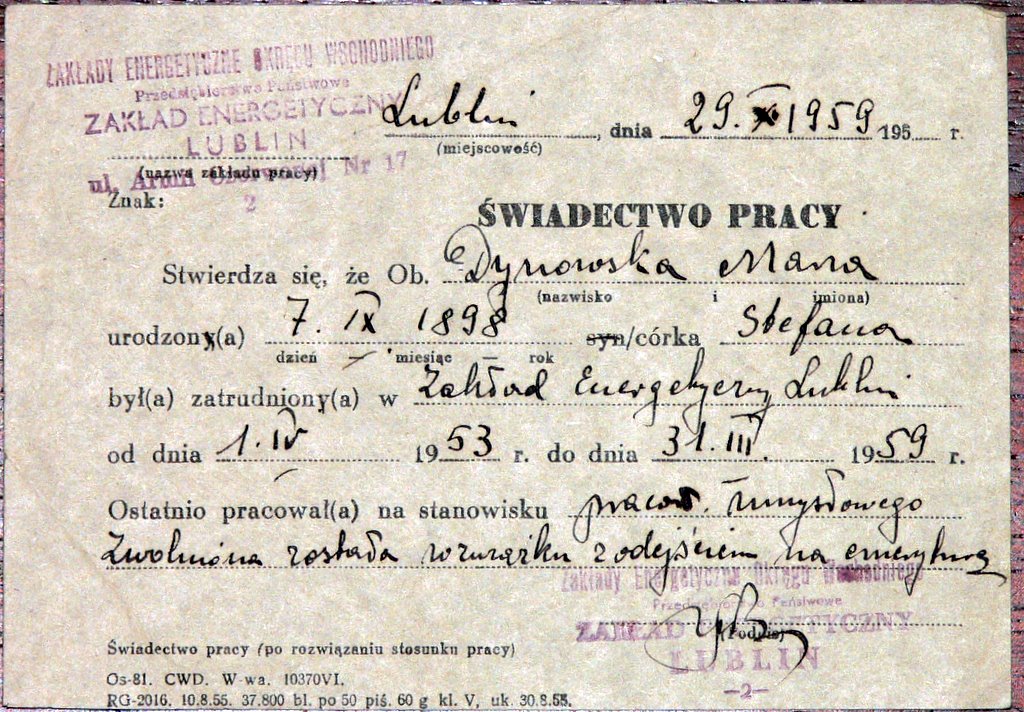 ZAKŁADY ENERGETYCZNE OKRĘGU WSCHODNIEGO
Przedsiębiorstwo Państwowe
ZAKŁAD ENERGETYCZNY
LUBLIN
ul. Armii Czerwonej Nr 17
(nazwa zakładu pracy)
2
Znak:
Lublin, dnia 29. 1959 195 r.
(miejscowość)
ŚWIADECTWO PRACY
Stwierdza się, że Ob. Dynowska Maria
(nazwisko i imiona)
urodzony(a) 7. IX 1898 syn/córka Stefana
dzień — miesiąc — rok
był(a) zatrudniony(a) w Zakład Energetyczny Lublin
od dnia 1. IV 1953 r. do dnia 31. III. 1959 r.
Ostatnio pracował(a) na stanowisku pracow. umysłowego
Zwolniona została w związku z odejściem na emeryturę
Zakłady Energetyczne Okręgu Wschodniego
Przedsiębiorstwo Państwowe
ZAKŁAD ENERGETYCZNY
(Podpis)
LUBLIN
—2—
Świadectwo pracy (po rozwiązaniu stosunku pracy)
Os-81. CWD. W-wa. 10370VI.
RG-2016. 10.8.55. 37.800 bl. po 50 piś. 60 g kl. V, uk. 30.8.55.